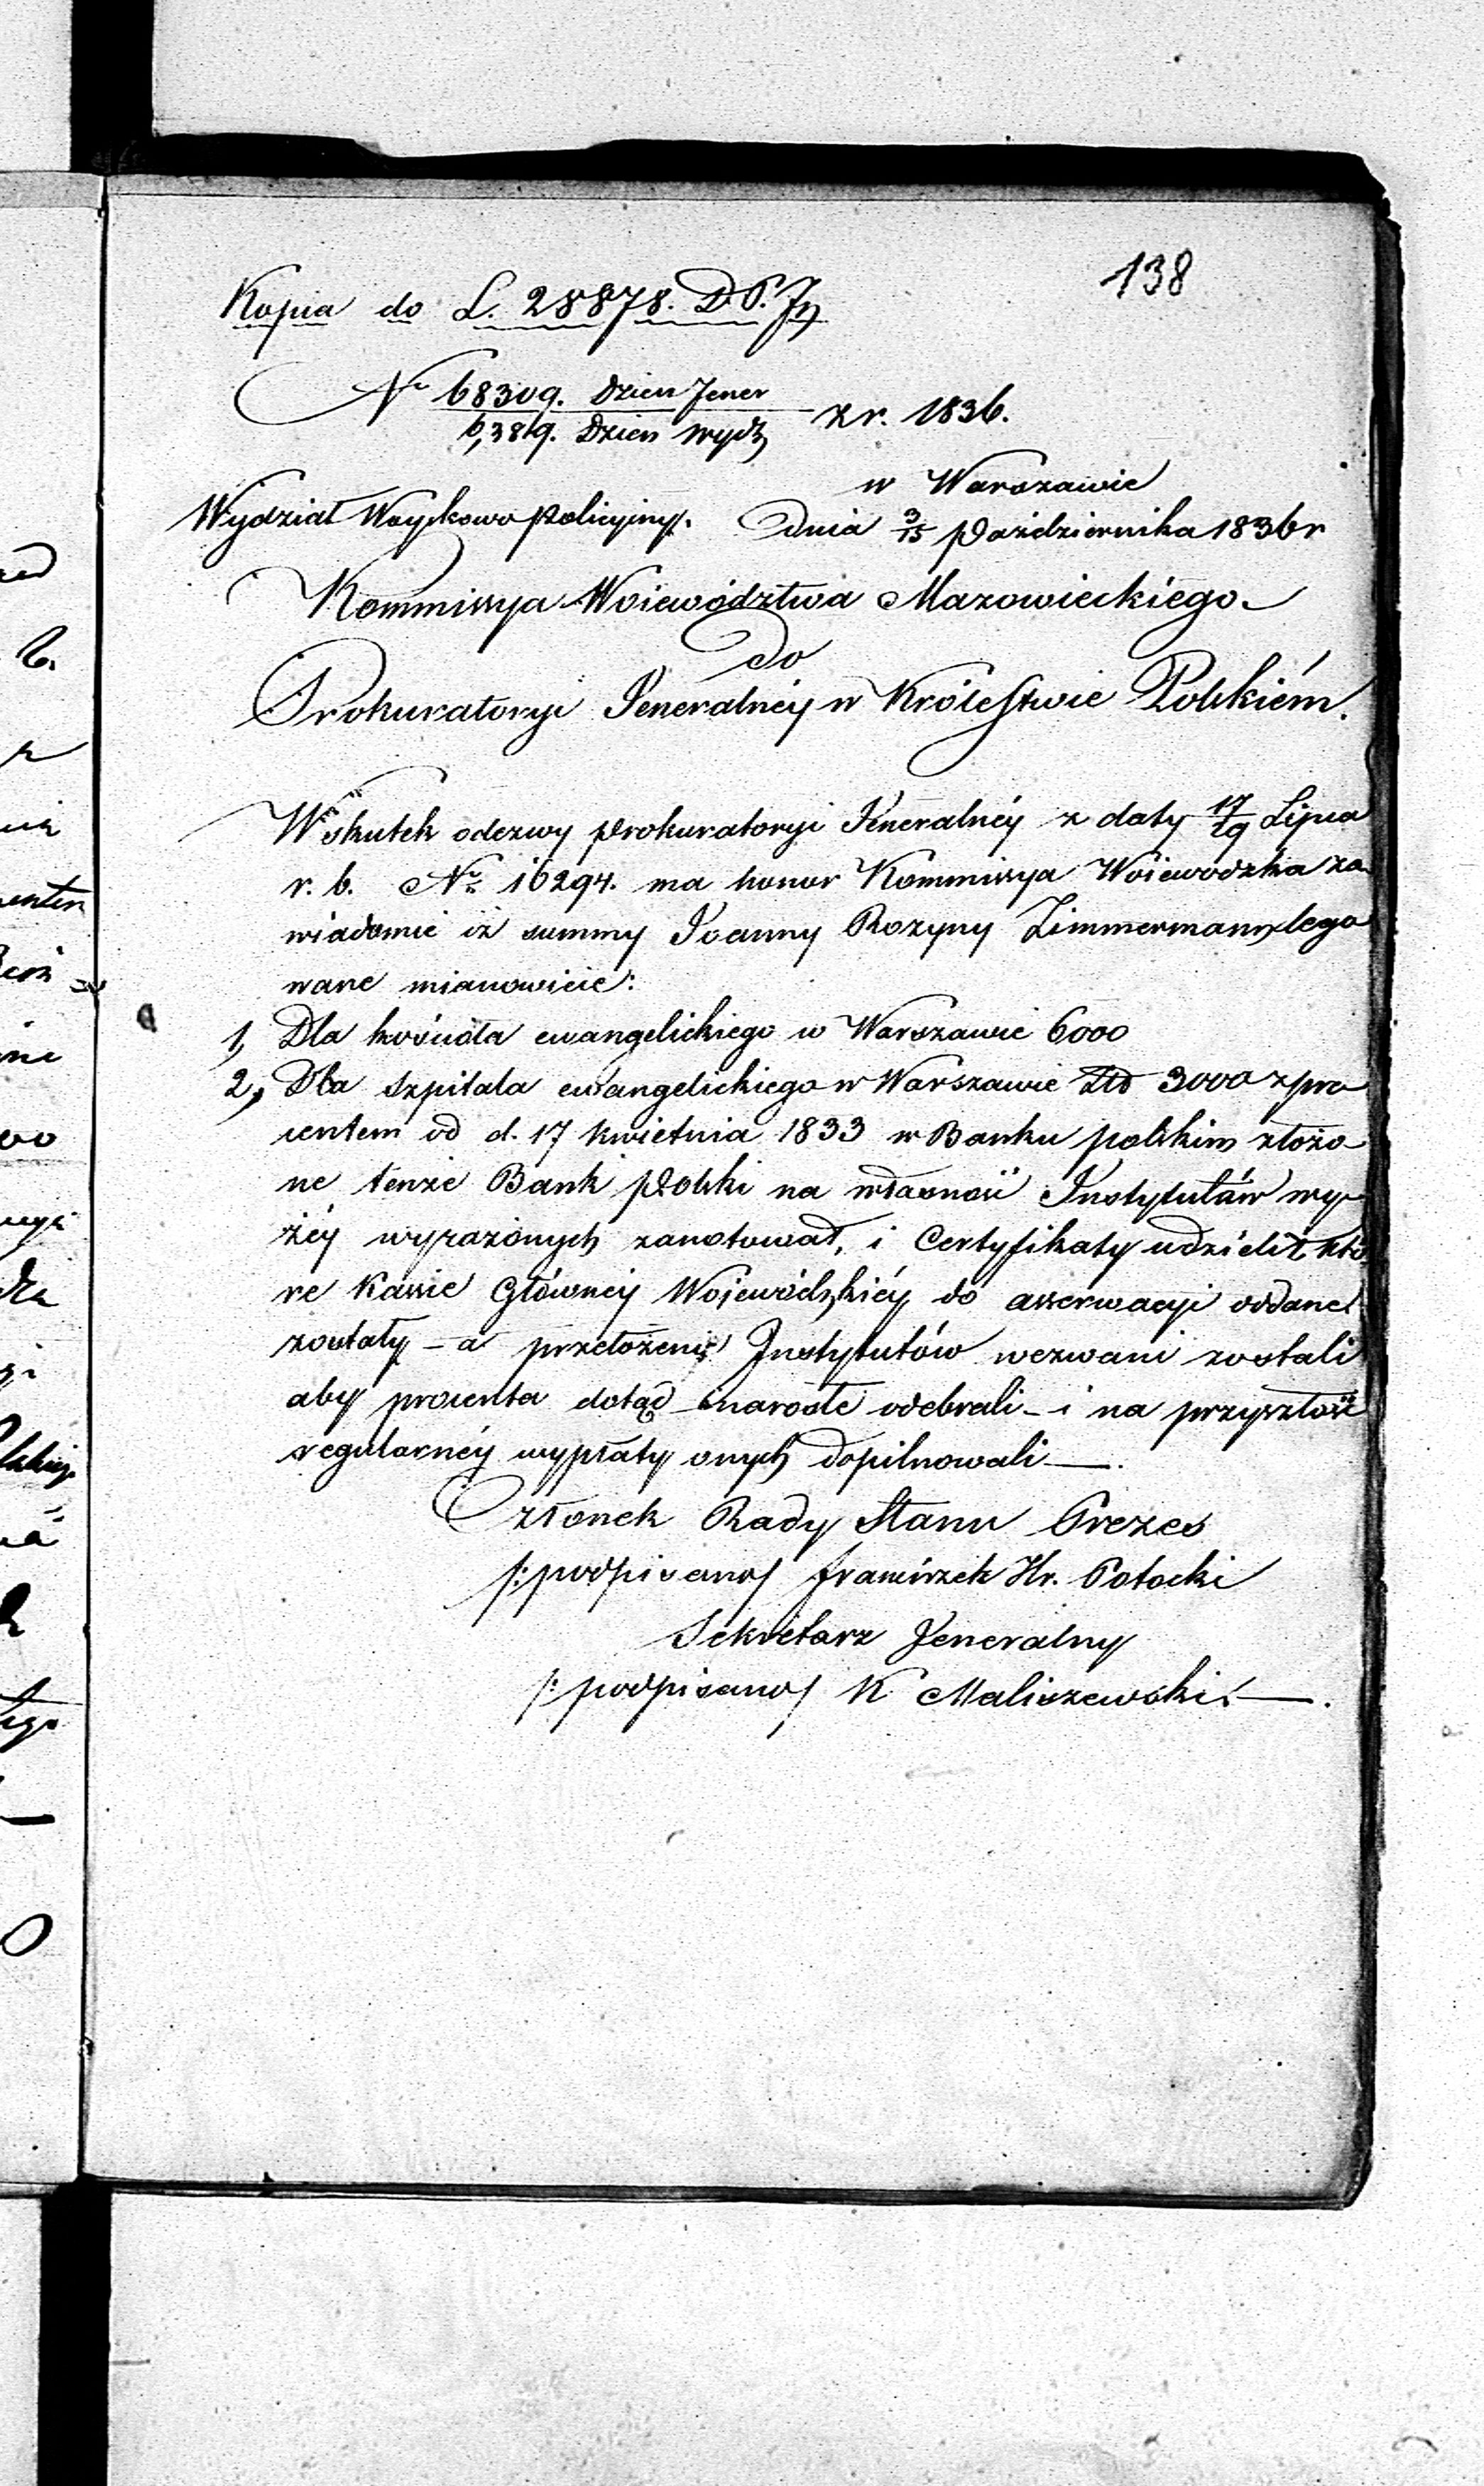 138
Kopia do L. 28878. D.P.
N° 68309. Dzien Jener
6,389. Dzien wydz z r. 1836.
w Warszawie
Wydział Woyskowo Policyiny. Dnia 3/15 Października 1836 r
Kommissya Woiewództwa Mazowieckiégo
Do
Prokuratoryi Jeneralnéy w Królestwie Polskiém.
W skutek odezwy Prokuratoryi Jeneralnéy z daty 17/29 Lipca
r. b. N° 16294. ma honor Kommissya Woiewodzka za
wiadomić iż summy Joanny Rozyny Zimmermann lego
wane mianowicie:
1, Dla kościoła ewangelickiego w Warszawie 6000
2, Dla szpitala ewangelickiego w Warszawie Złd 3000 z pro
centem od d. 17 kwietnia 1833 w Banku polskim złożo
ne tenże Bank Polski na własność Instytutów wy
żéy wyrażonych zanotował, i Certyfikaty udzielił któ
re Kassie Główneÿ Wojewódzkiéy do asserwacyi oddane
zostały – a przełożeni Instytutów wezwani zostali
aby procenta dotąd narosłe odebrali – i na przyszłość
regularnéy wypłaty onych dopilnowali —.
Członek Rady Stanu Prezes
/:podpisano/ Franciszek Hr. Potocki
Sekretarz Jeneralny
/:podpisano/ K Maliszewski. —.